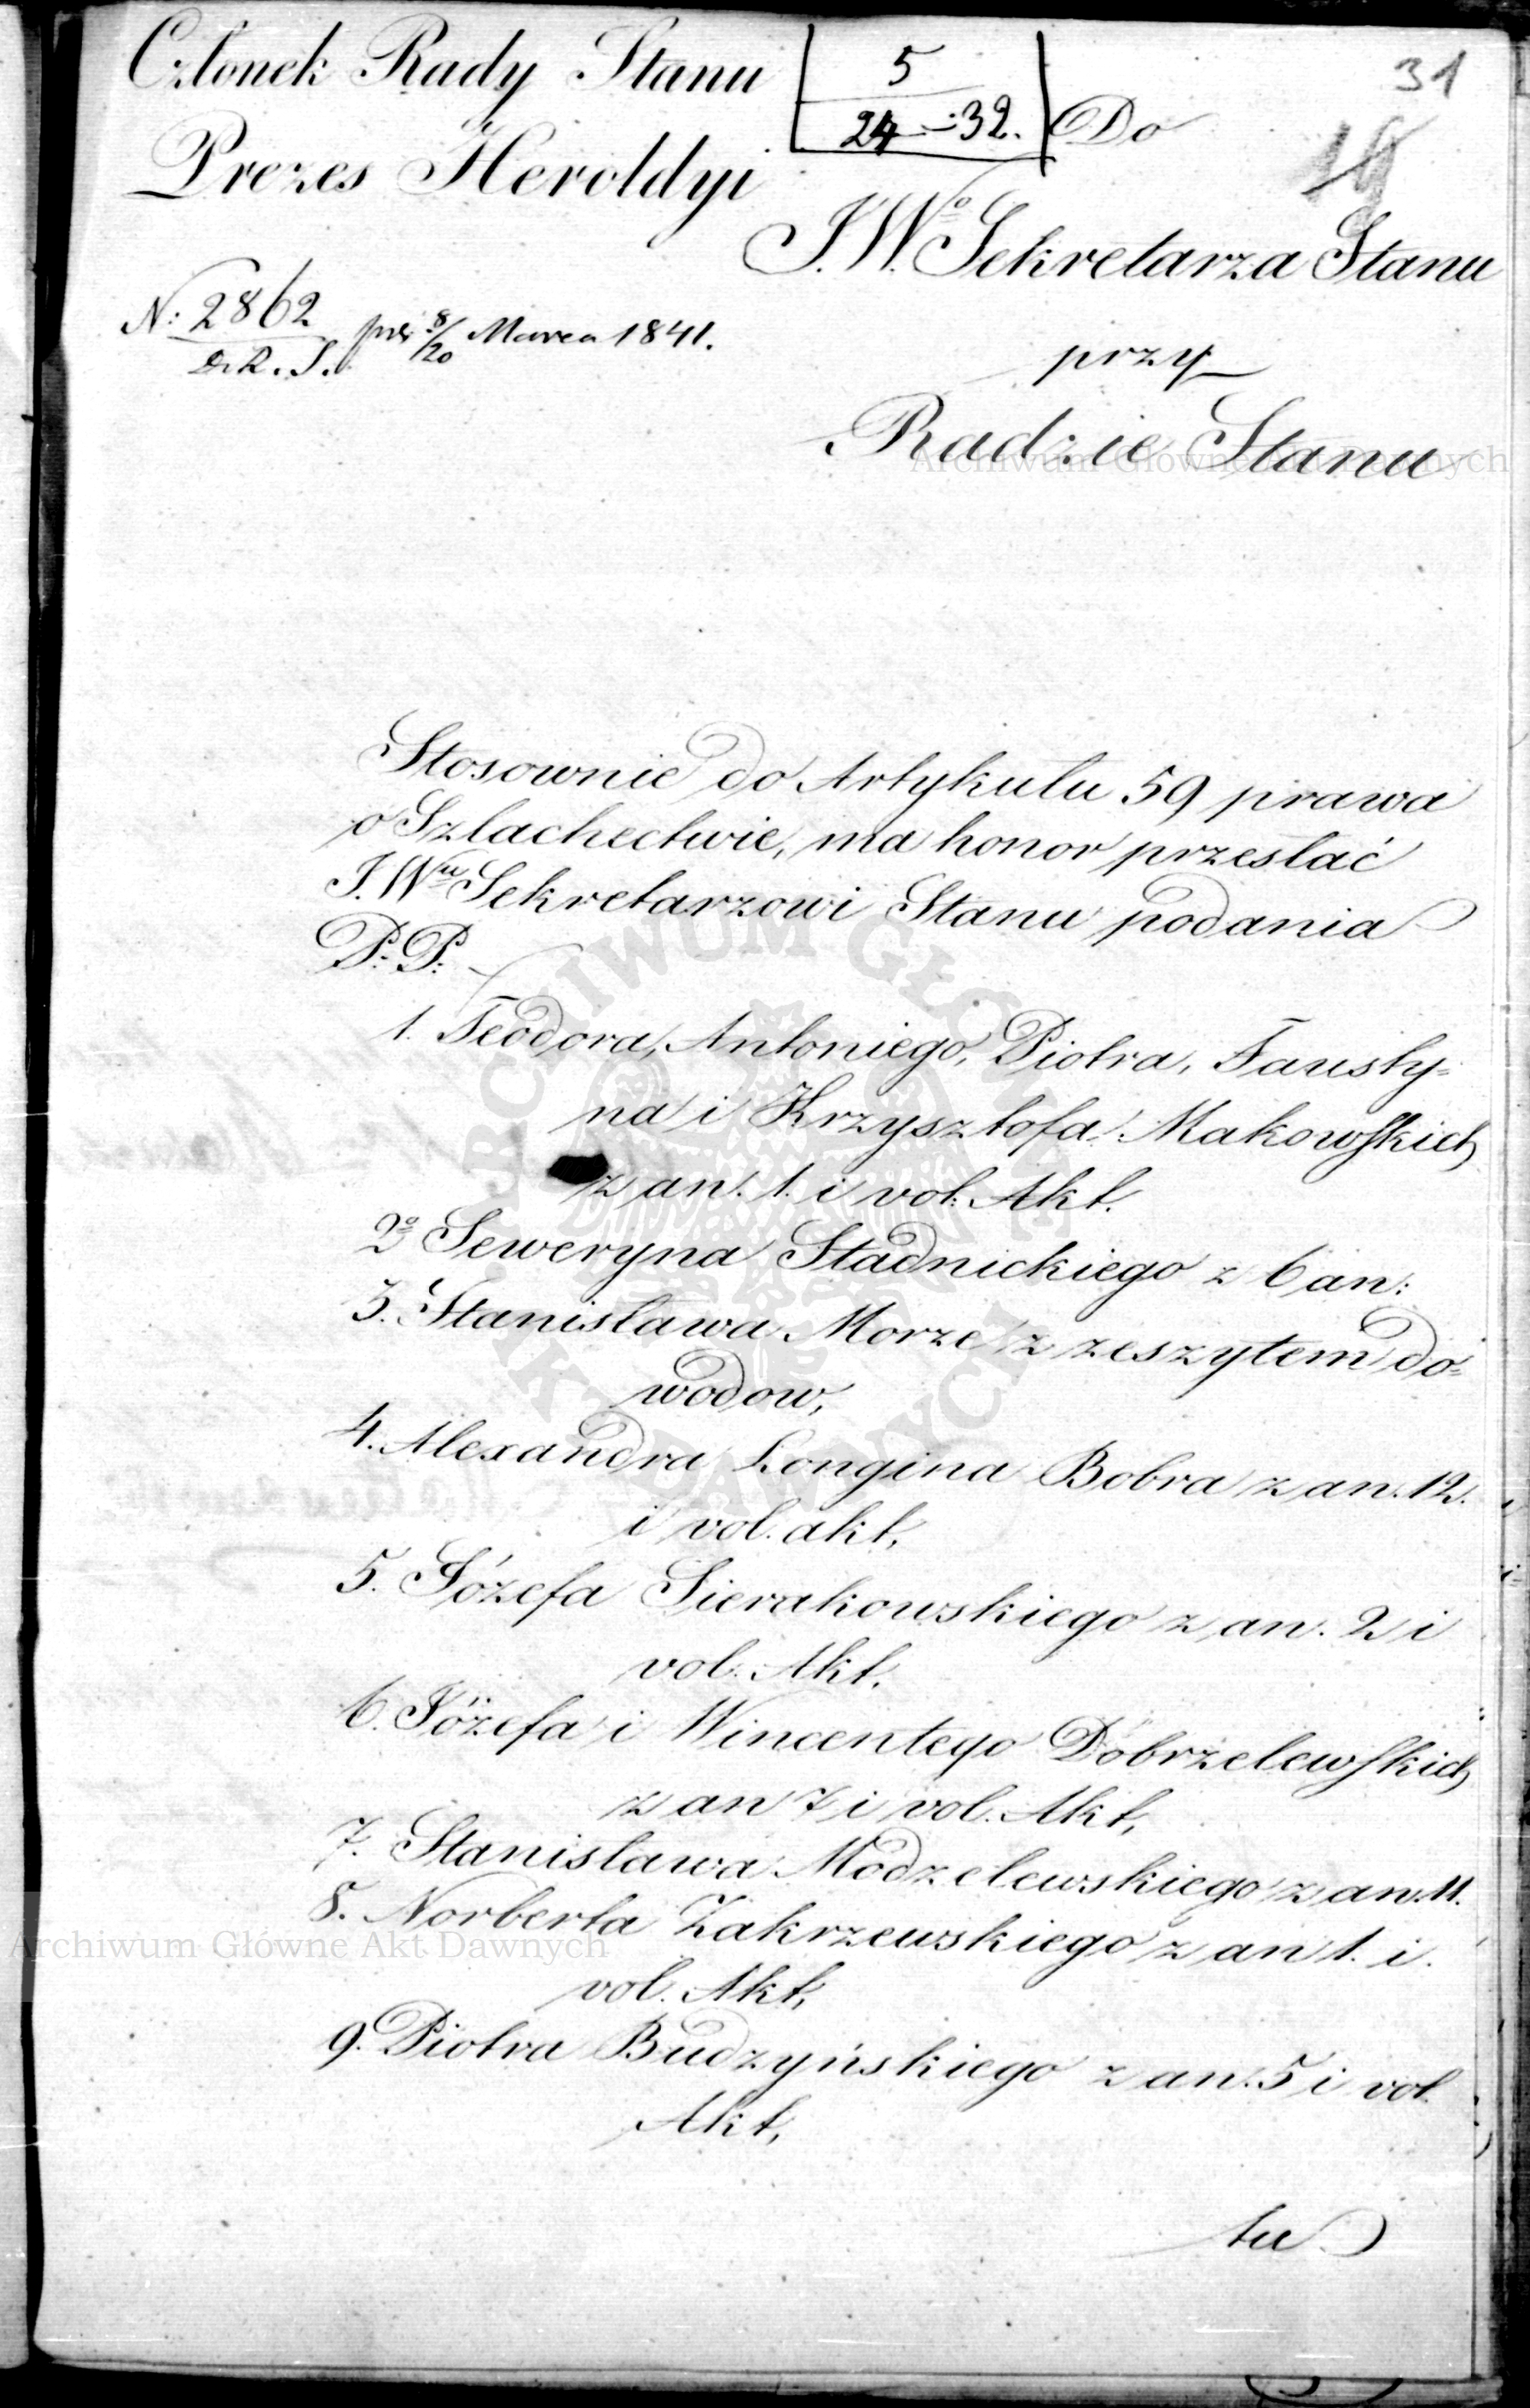 Członek Rady Stanu
Prezes Heroldyi
5
24 - 32.
31
Do
J.W.o Sekretarza Stanu
przy
Radzie Stanu
N: 2862
D.R.S. 8/20 Marca 1841.
Stosownie do Artykułu 59 prawa
o Szlachectwie, ma honor przesłać
J.Wu Sekretarzowi Stanu podania
P.P.
1. Teodora, Antoniego, Piotra, Fausty=
na i Krzysztofa Makowskich
z an. 1. i vol. Akt.
2o Seweryna Stadnickiego z 6 an:
3. Stanisława Morze z zeszytem do=
wodow,
4. Alexandra Longina Bobra z an. 12.
i vol. akt,
5. Józefa Sierakowskiego z an. 2 i
vol. Akt.
6. Józefa i Wincentego Dobrzelewskich
z an 7 i vol. Akt,
7. Stanisława Modzelewskiego z an. 11.
8. Norberta Zakrzewskiego z an 1. i
vol. Akt,
9. Piotra Budzyńskiego z an. 5 i vol.
Akt,
tu
Archiwum Główne Akt Dawnych